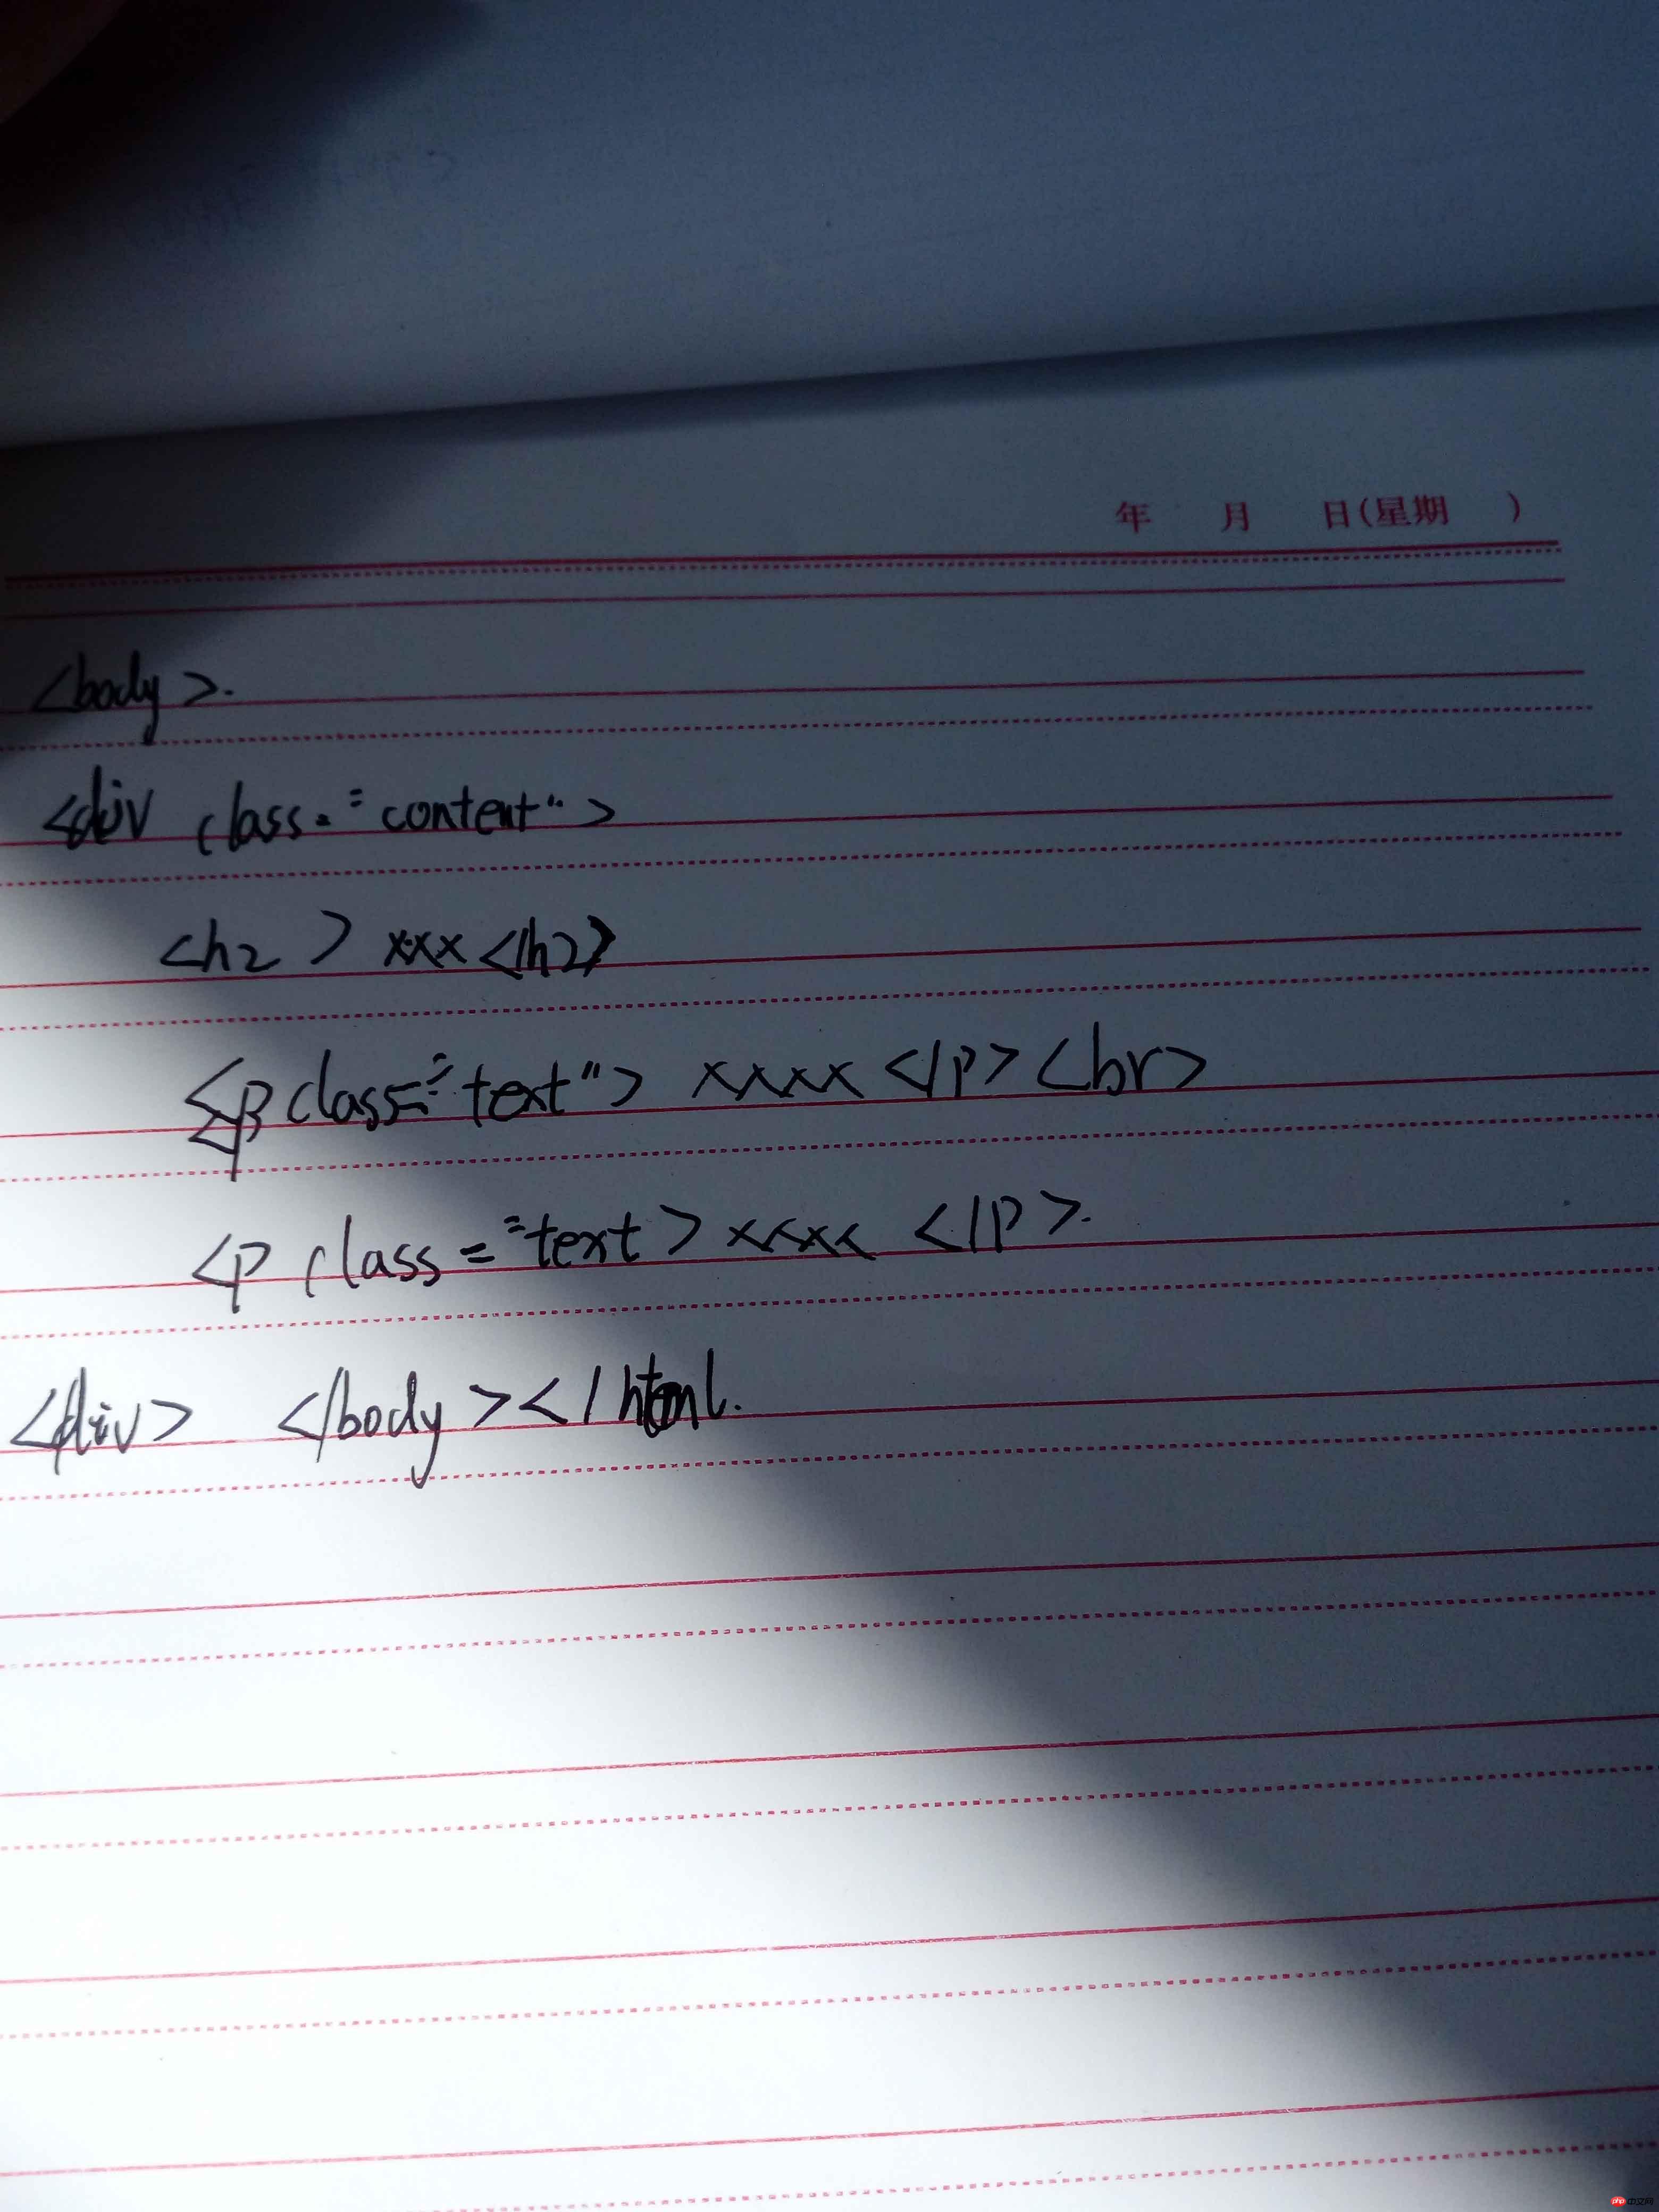 年 月 日(星期 )
<body>.
<div class="content">
<h2> xxx </h2>
<p class="text"> xxxx </p> <br>
<p class="text> xxxx </p>.
</div> </body></html.
php中文网